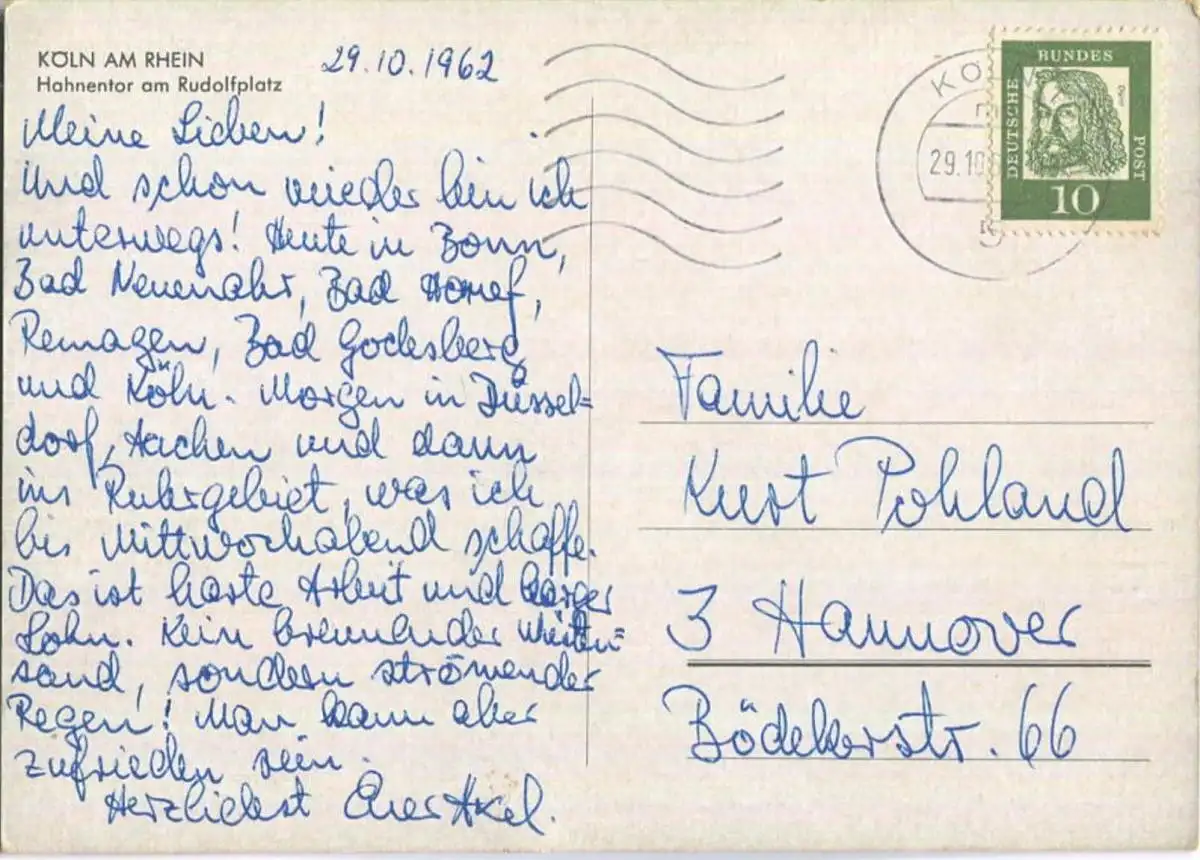 KÖLN AM RHEIN
Hahnentor am Rudolfplatz
29.10.1962
Meine Lieben!
Und schon wieder bin ich
unterwegs! Heute in Bonn,
Bad Neuenahr, Bad Honnef,
Remagen, Bad Godesberg
und Köln. Morgen in Düssel=
dorf, Aachen und dann
ins Ruhrgebiet, was ich
bis Mittwochabend schaffe.
Das ist harte Arbeit und karger
Lohn. Kein brennender
sand, sondern strömender
Regen! Man kann aber
zufrieden sein.
Herzliebst Euer Axel.
KÖLN
29.10
5
DEUTSCHE BUNDES POST
10
Familie
Kurt Pohland
3 Hannover
Bödekerstr. 66